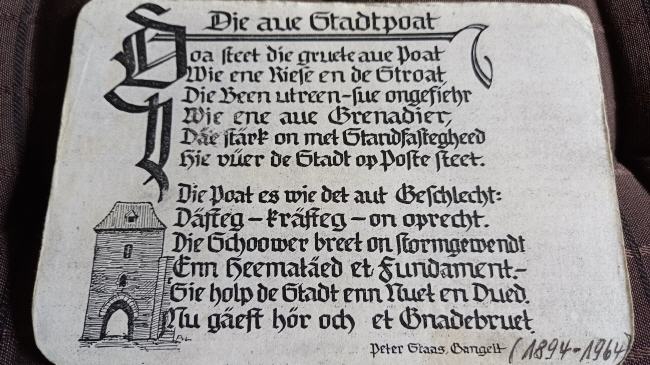 Die aue Stadtpoat
Doa steet die gruete aue Poat
Wie ene Riese en de Stroat,
Die Been utreen-sue ongefiehr
Wie ene aue Grenadier,
Däe stärk on met Standfastegheed
Hie vüer de Stadt op Poste steet.
Die Poat es wie det aut Geschlecht:
Däfteg – kräfteg – on oprecht.
Die Schoower breet on stormgewendt
Enn Heematäed et Fundament.-
Sie holp de Stadt enn Nuet en Dued.
Nu gäeft hör och et Gnadebruet.
Peter Staas, Gangelt (1894-1964)